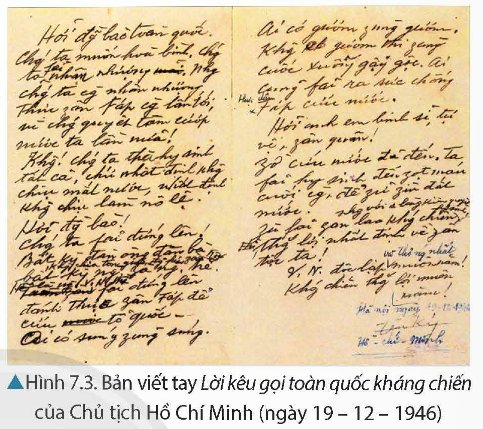 Hỡi đg bào toàn quốc.
Chg ta muốn hoà bình, chg
ta fải nhân nhượng. Nhg
chg ta cg nhân nhượng
thực zân Fáp cg lấn tới,
vì chg quyết tâm cướp
nước ta lần nữa!
Khg! Chg ta thà hy sinh
tất cả, chứ nhất định khg
chịu mất nước, nhất định
khg chịu làm nô lệ.
Hỡi đg bào!
Chg ta fải đứng lên!
Bất kỳ đàn ông đàn bà,
bất kỳ
fải đứng lên
đánh thực zân Fáp để
cứu tổ quốc –
Ai có súng zùng súng.
Ai có gươm zùng gươm.
Khg có gươm thì zùng
cuốc xuổng gậy gộc. Ai
cũng fải ra sức chống
Fáp cứu nước.
Hỡi anh em binh sĩ, tự
vệ, zân quân!
Zờ cứu nước đã đến. Ta
fải hy sinh đến zọt máu
cuối cg, để zữ zìn đất
nước.
Zù fải zan lao kháng chiến,
thg lợi nhất định về zân
tộc ta!
V.N. độc lập và thống nhất muôn năm!
Kháng chiến thg lợi muôn
năm!
Hà nội ngày 19-12-1946
Hồ-chí-Minh
▲Hình 7.3. Bản viết tay Lời kêu gọi toàn quốc kháng chiến
của Chủ tịch Hồ Chí Minh (ngày 19 – 12 – 1946)